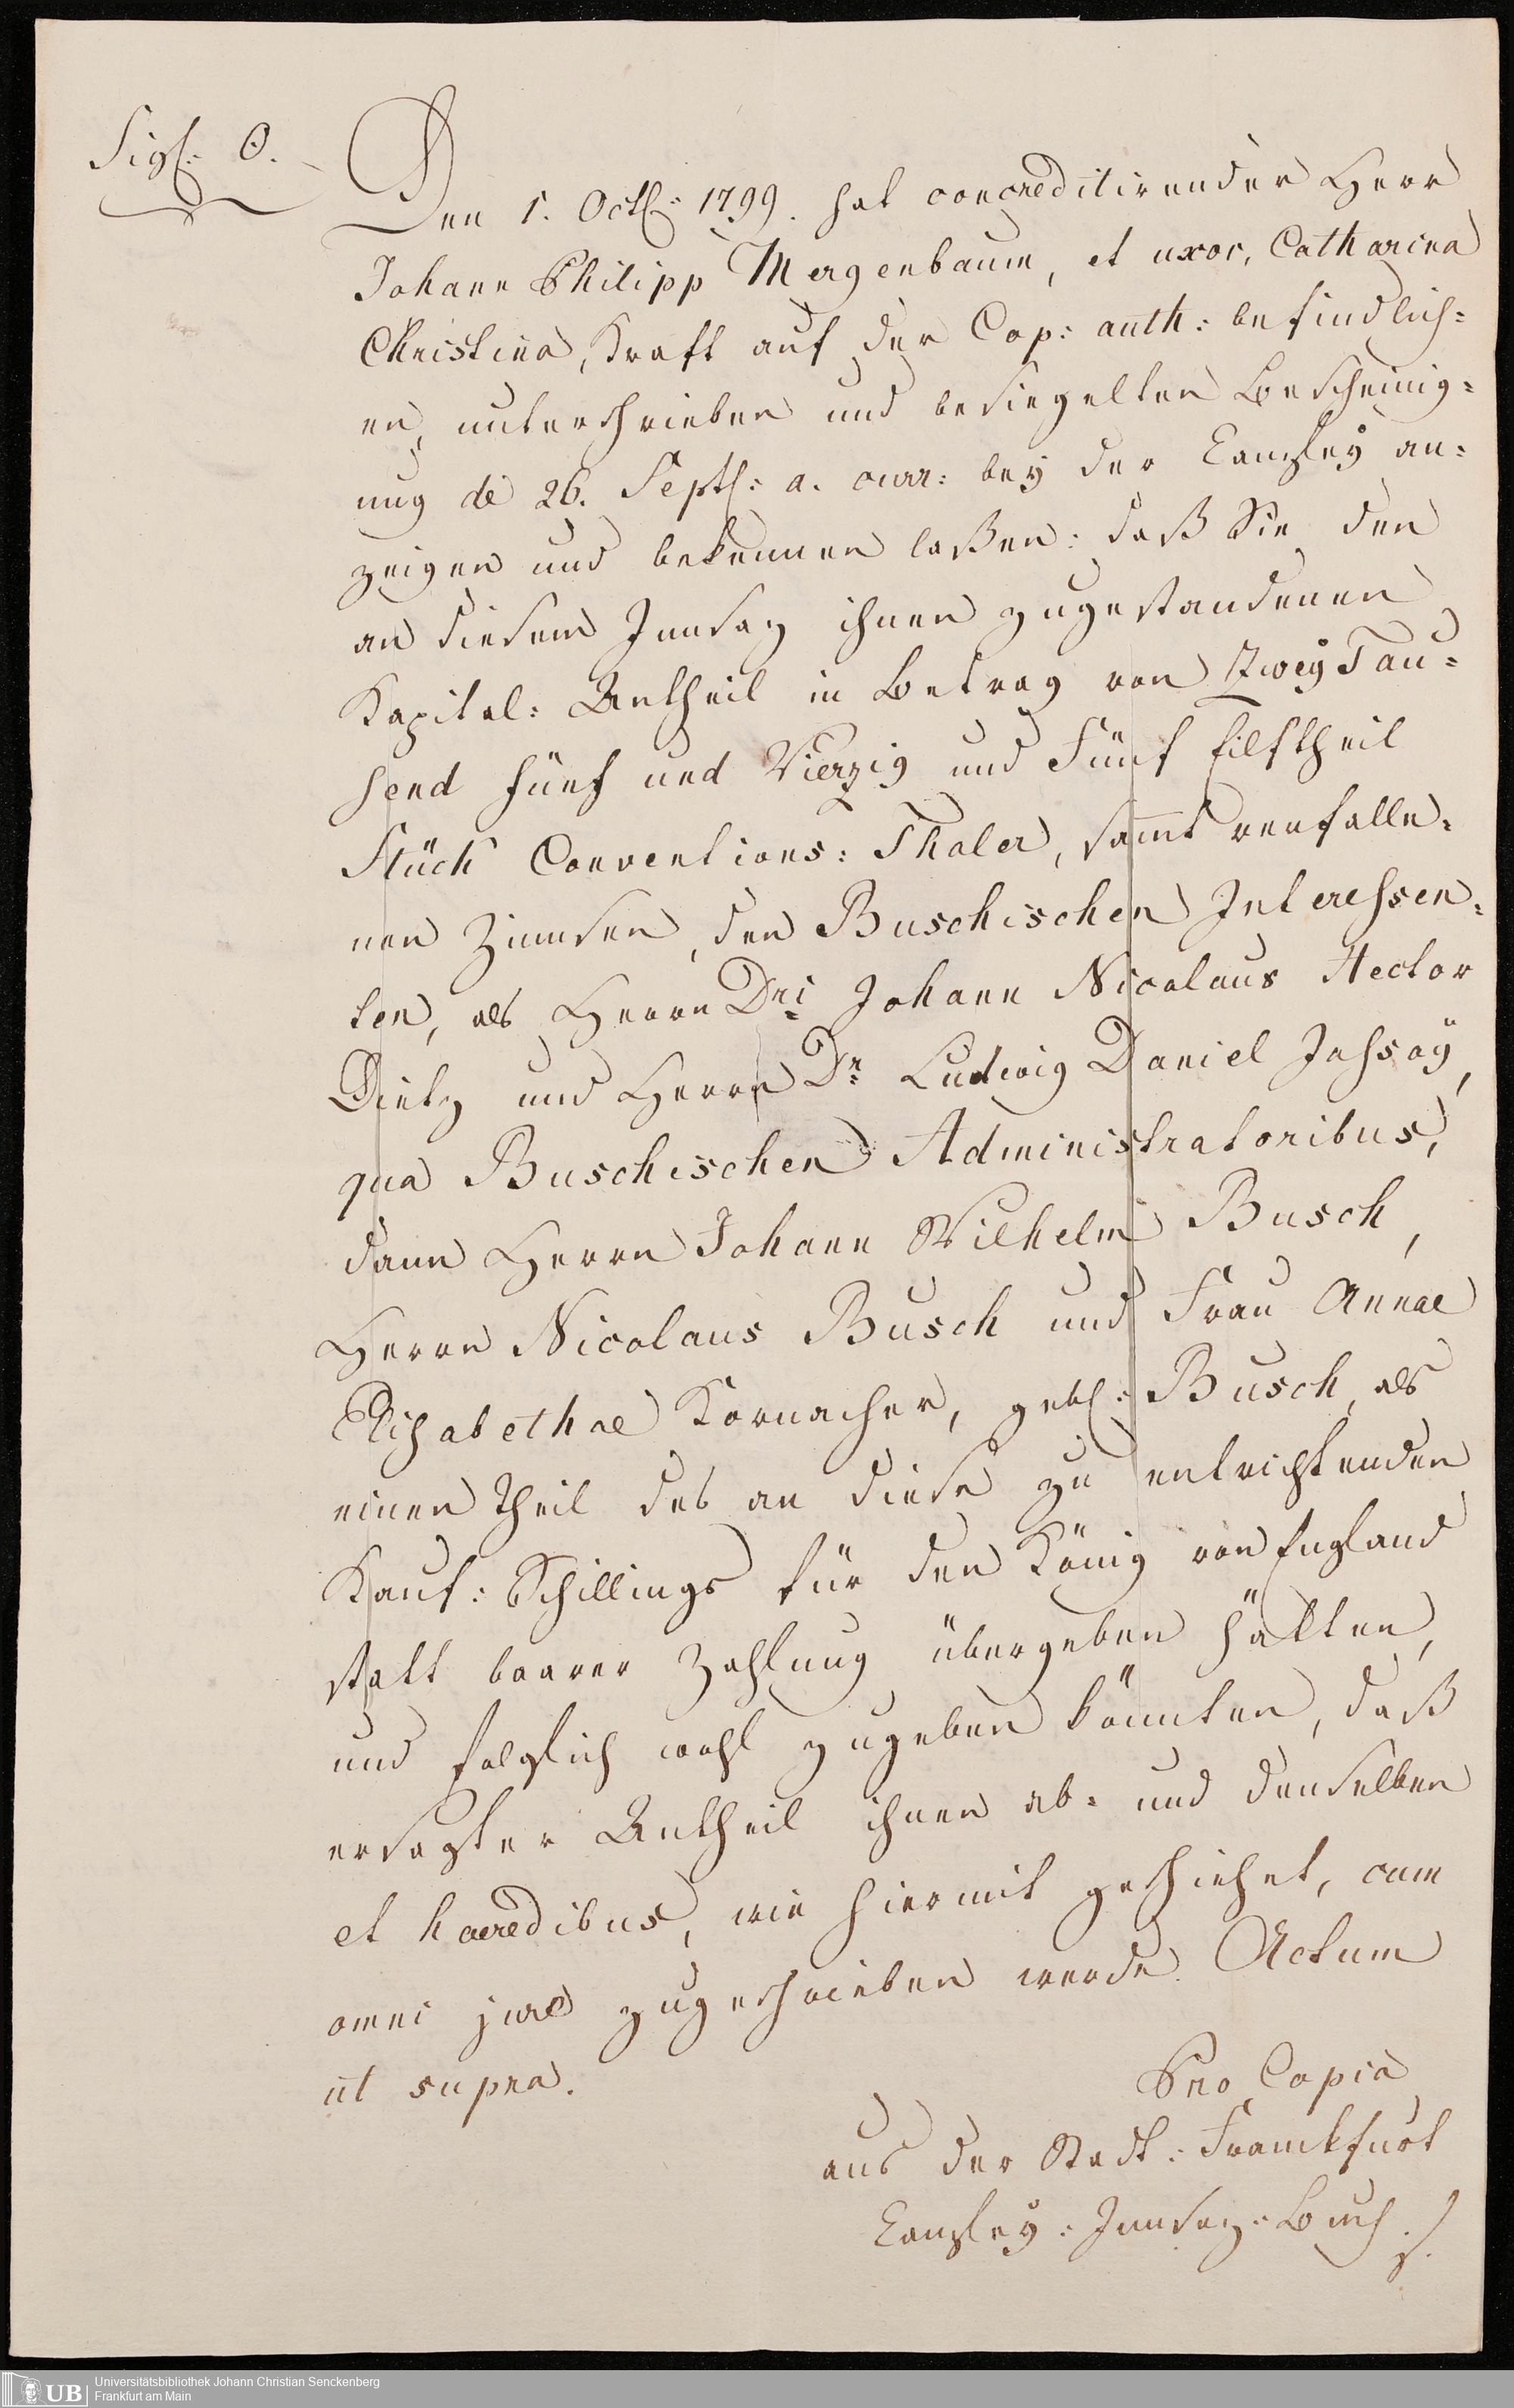 Sigl: O.
Den 1. Octb: 1799. hat concreditirender Herr
Johann Philipp Mergenbaum, et uxor, Catharina
Christina, Kraft auf der Cop: auth: befindlich=
en, unterschrieben und besiegelten Bescheinig=
ung de 26. Septb: a. curr: bey der Canzley an=
zeigen und bekennen laßen: daß Sie den
an diesem Innsaz ihnen zugestandenen
Kapital= Antheil in Betrag von Zwey Tau=
send fünf und Vierzig und Fünf Eilftheil
Stück Conventions= Thaler, samt verfalle=
nen Zinnsen, den Buschischen Interessen=
ten, als Herrn Dri Johann Nicolaus Hector
Dietz und Herrn Dr Ludwig Daniel Jassoÿ,
qua Buschischen Administratoribus,
dann Herrn Johann Wilhelm Busch,
Herrn Nicolaus Busch und Frau Annae
Elisabethae Kornacher, geb: Busch, als
einen Theil des an diese zu entrichtenden
Kauf= Schillings für den König von England
statt baarer Zahlung übergeben hätten,
und folglich wohl zugeben könnten, daß
ersagter Antheil ihnen ab= und denselben
et haeredibus, wie hiermit geschiehet, cum
omni jure zugeschrieben werde. Actum
ut supra.
Pro Copia
aus der Stadt= Franckfurt
Canzley= Innsaz= Buch.
UB
Universitätsbibliothek Johann Christian Senckenberg
Frankfurt am Main